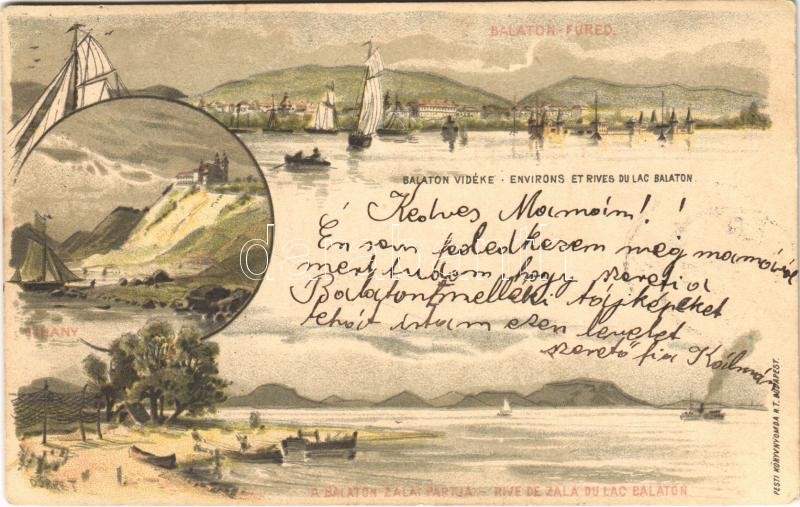 BALATON-FÜRED.
BALATON VIDÉKE · ENVIRONS ET RIVES DU LAC BALATON.
Kedves Mamám!
Én sem feledkezem meg mamáról
mert tudom hogy szereti a
Balatonmelléki tájképeket
tehát írtam ezen levelet
szerető fia Kálmán
TIHANY
A BALATON ZALAI PARTJA - RIVE DE ZALA DU LAC BALATON
DÖRRE T.
PESTI KÖNYVNYOMDA R.T. BUDAPEST.
darabanth